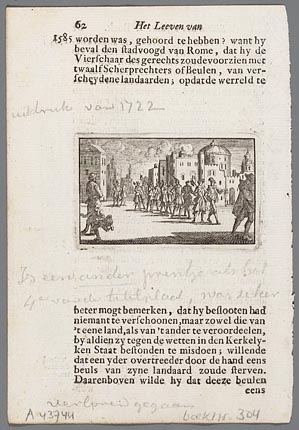 62 Het Leeven van
1585 worden was, gehoord te hebben? want hy
beval den stadvoogd van Rome, dat hy de
Vierschaar des gerechts zoude voorzien met
twaalf Scherprechters of Beulen, van ver-
scheydene landaarden; opdat de werreld te
uitdruk van 1722
Is een ander prentje als het
4e van de titelplaat, was zeker
beter mogt bemerken, dat hy beslooten had
niemant te verschoonen, maar zowel die van
't eene land, als van 't ander te veroordeelen,
by aldien zy tegen de wetten in den Kerkely-
ken Staat bestonden te misdoen; willende
dat een yder overtreeder door de hand eens
beuls van zyne landaard zoude sterven.
Daarenboven wilde hy dat deeze beulen
eens
verloren gegaan
A 43944 boek nr. 304